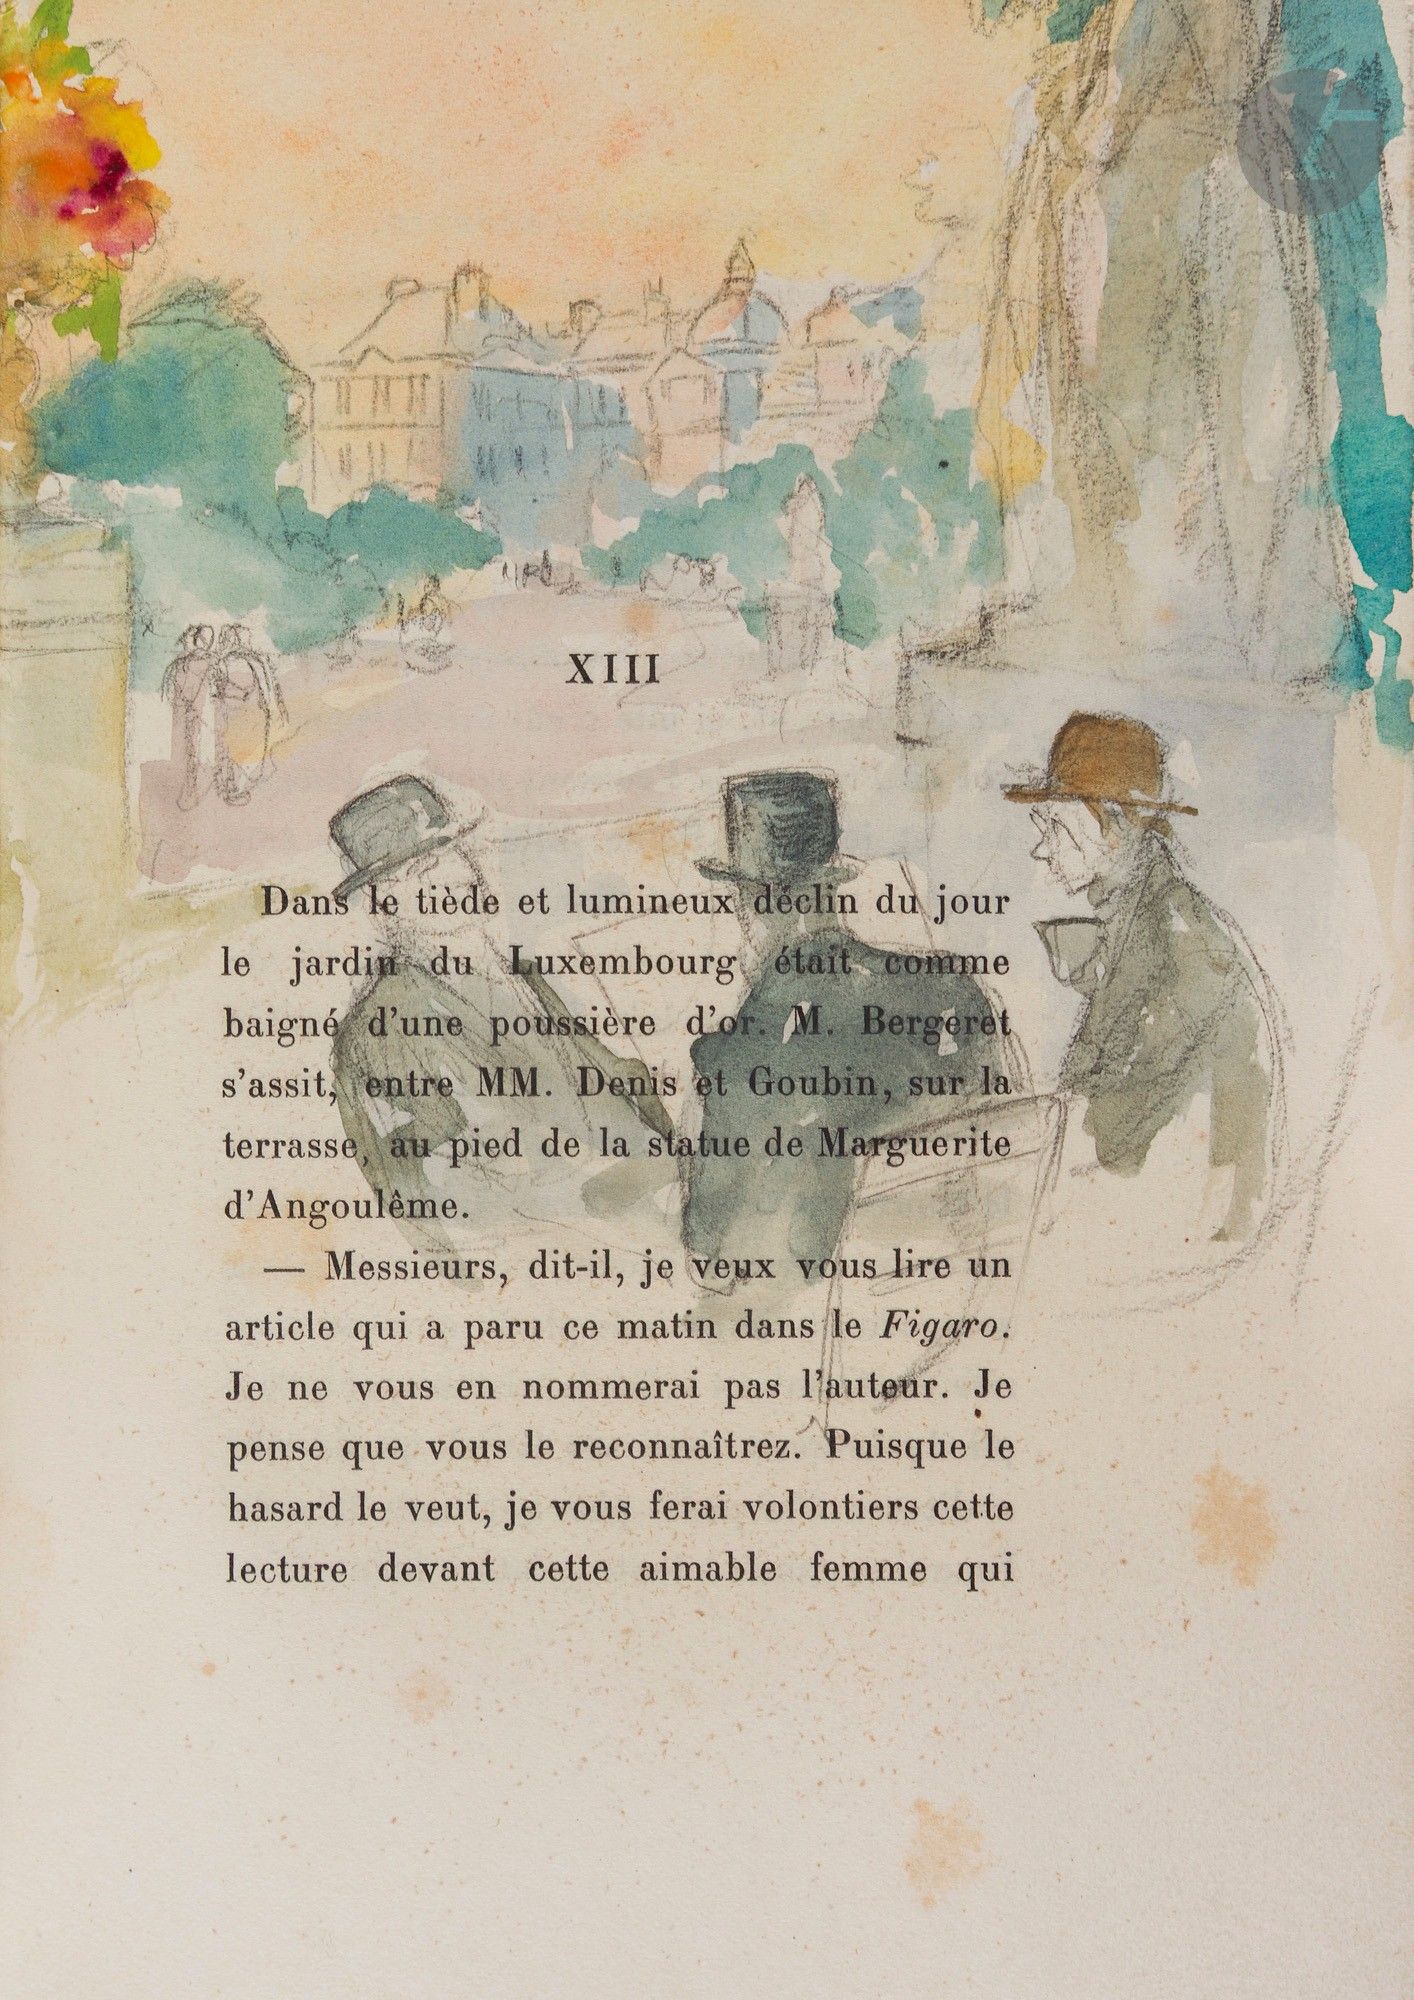 XIII
Dans le tiède et lumineux déclin du jour
le jardin du Luxembourg était comme
baigné d'une poussière d'or. M. Bergeret
s'assit, entre MM. Denis et Goubin, sur la
terrasse, au pied de la statue de Marguerite
d'Angoulême.
— Messieurs, dit-il, je veux vous lire un
article qui a paru ce matin dans le Figaro.
Je ne vous en nommerai pas l'auteur. Je
pense que vous le reconnaîtrez. Puisque le
hasard le veut, je vous ferai volontiers cette
lecture devant cette aimable femme qui